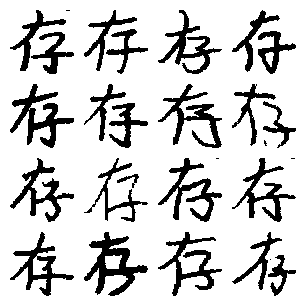 存存存存
存存存存
存存存存
存存存存